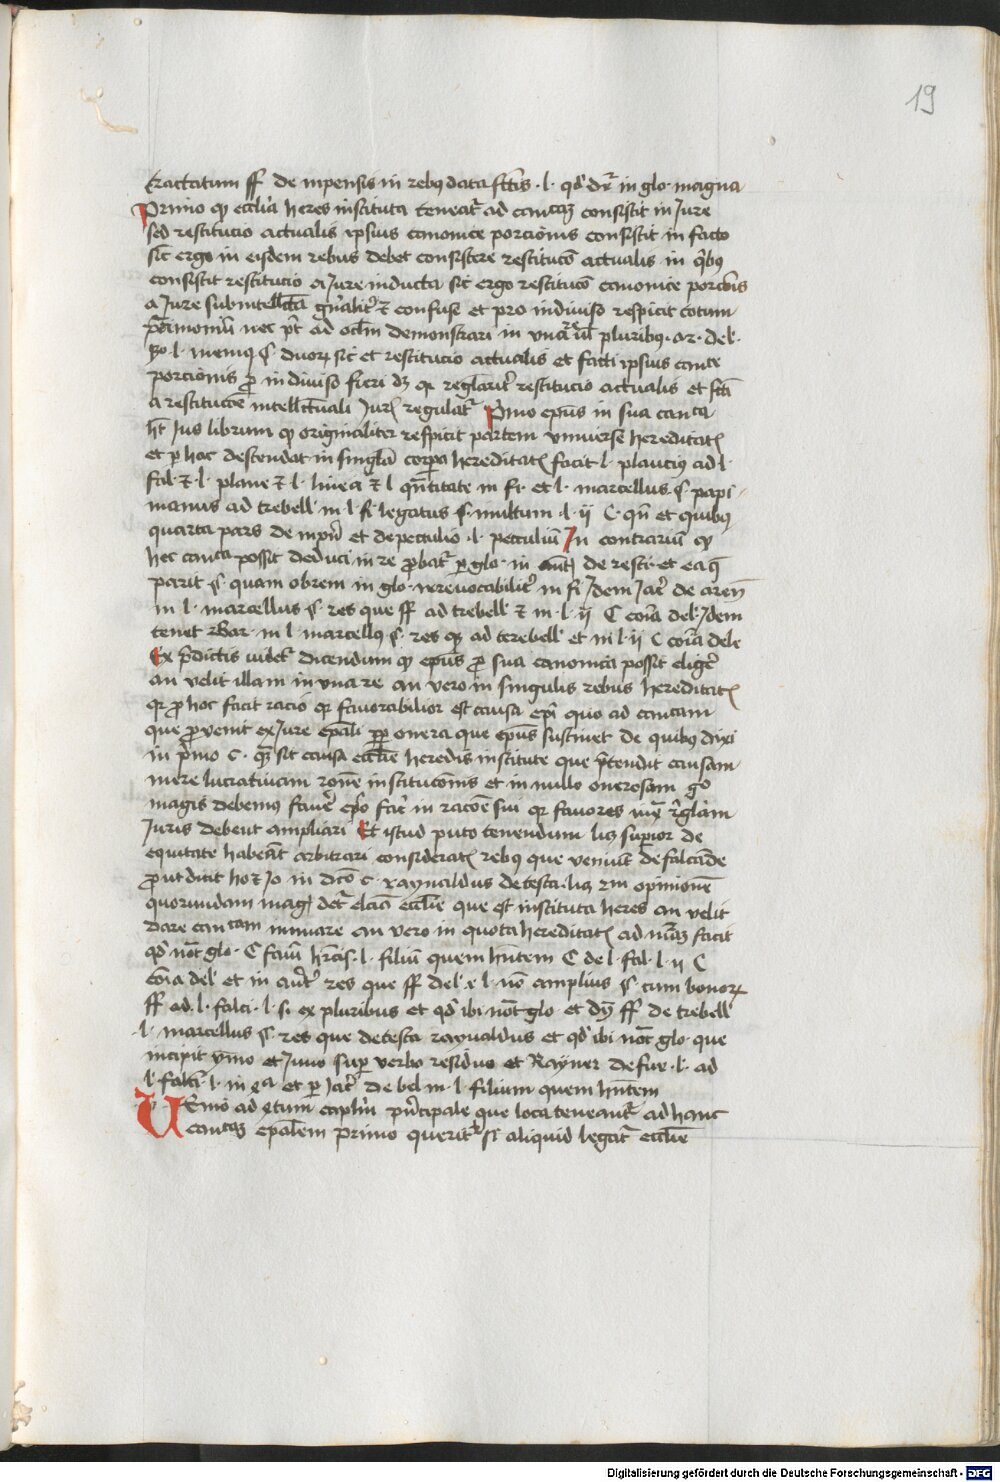 19
tractatum ff de inpensis in rebus data fctis · l · qd dr in glo magna
Primo qz ecclia heres instituta teneatr ad cantcaz consistit in Jure
sed restitucio actualis ipsius canonice porcionis consistit in facto
sic ergo in eisdem rebus debet consistere restitucō actualis in qbus
consistit restitucio a Jure inducta sic ergo restitucō canonice porcōnis
a Jure subintellecta gnalitr et confuse et pro indiviso respicit totum
pr̄imoniū nec pt ad oclm demonstrari in una ul pluribus · ar · de l ·
l · menius § duorz sic et restitucio actualis et facti ipsius cantce
porcionis pro indiviso fieri dz qr reglaritr restitucio actualis et fcta
a restitucōe intellectuali Jurz regulatr Pimo epus in sua cantca
ht Jus librum qz originaliter respicit partem universe hereditatz
et per hoc descendat in singlā corpora hereditatz facit l · plautius ad l ·
fal · et · l · plane et · l · linea et l quātitate in fi · et l · marcellus · § papi-
nianus ad trebell in l · fi · legatus § · multum · l · ij C · qn et quibus
quarta pars de inpn et de peculio · l · peculiū In contrariū qz
hec cantca possit deduci in re probatr per glo · in autz de resti · et ea q
parit § · quam obrem in glo · irrevocabilitr in fi Jdem Jac de aren
in l · marcellus § · res que ff ad trebell et in · l · ij C cōia de l · Jdem
tenet Bar · in l · marcellus § · res qz ad terebell et in l · ij C cōia de le
Ex pdictis videtr dicendum qz epus pro sua canonica possit eligere
an velit illam in una re an vero in singulis rebus hereditatz
qr pro hoc facit racio qr favorabilior est causa epi quo ad cantcam
que provenit ex Jure epali ppr onera que epus sustinet de quibus dixi
in pmo c · qz sit causa ecclie heredis institute que ptendit causam
mere lucrativam rone institucōnis et in nullo onerosam go
magis debemus favere epo fac in racōe sui qr favores
Juris debent ampliari Et istud puto tenendum liz superior de
equitate habeāt arbitrari consideratz rebus que veniūt de falcidie
prout dicit hoz Jo in dcō c · raynaldus de testa · liz opinionē
quorundam magz detr elcīa ecclie que est instituta heres an velit
dare cantcam in una re an vero in quota hereditatz ad facit
qd not glo · C fam hrcis · l · filiū quem hntem C de l · fal · l · ij C
cōia de l et in autr res que ff de l · l · nō amplius § cum bonorz
ff ad · l · falci · l · si ex pluribus et qd ibi not glo et dy ff de trebell
l · marcellus § · res que de testa raynaldus et qd ibi not glo · que
incipit ymo et Juno super verbo residuo et Rayner de fur · l · ad
l · falci · l · in et per Jac de bel in · l · filium quem hntem
Uenio ad qtum caplm principale que loca teneantr ad hanc
cantcaz epalem primo querit si aliquid legatr ecclie
Digitalisierung gefördert durch die Deutsche Forschungsgemeinschaft - DFG